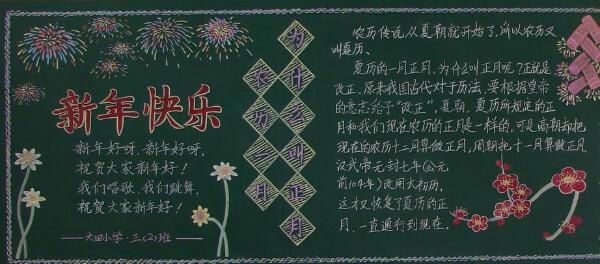 新年快乐
新年好呀,新年好呀,
祝贺大家新年好!
我们唱歌,我们跳舞,
祝贺大家新年好!
——六四小学·三(2)班——
为什么叫正月
农历一月
农历传说从夏朝就开始了,所以农历又
叫夏历。
夏历的一月正月,为什么叫正月呢?正就是
改正。原来我国古代对于历法,要根据皇帝
的意志给予“改正”。夏朝,夏历所规定的正
月和我们现在农历的正月是一样的,可是商朝却把
现在的农历十二月算做正月,周朝把十一月算做正月。
汉武帝元封七年(公元
前104年)改用太初历,
这才又恢复了夏历的正
月,一直通行到现在。